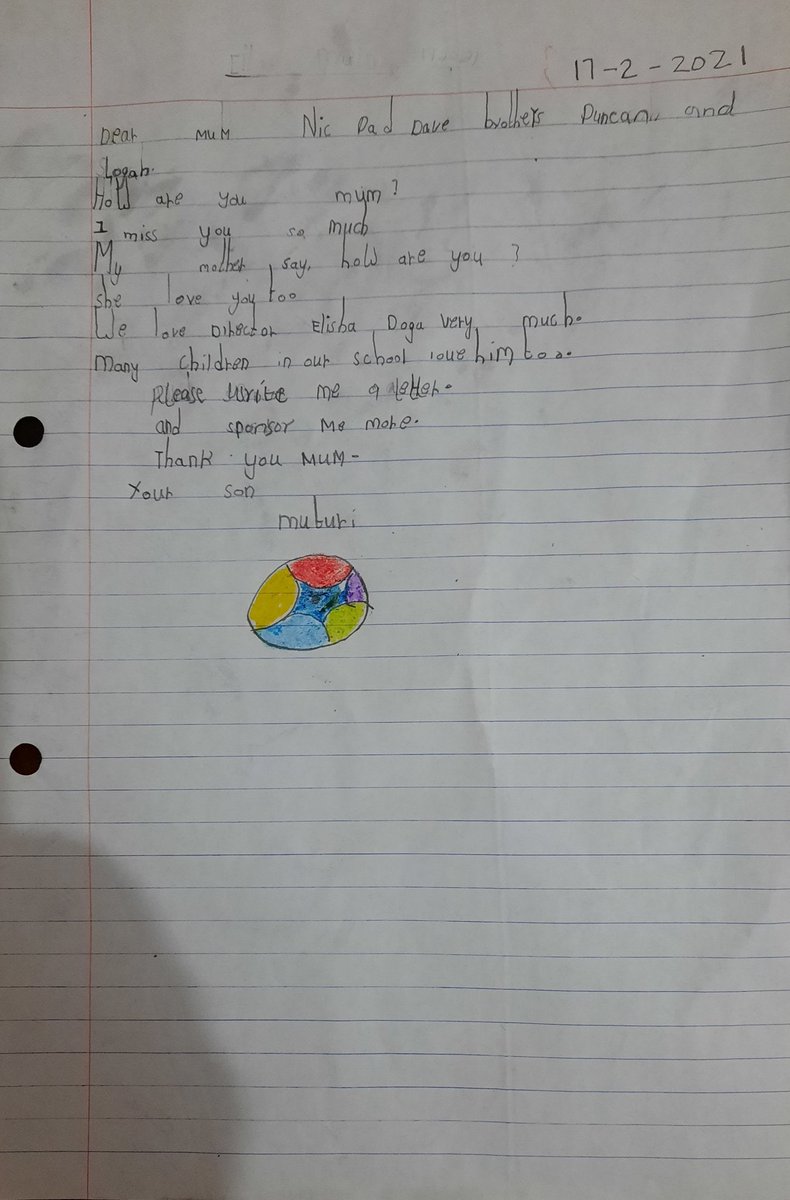 17-2-2021
Dear MUM Nic Dad Dave brothers Duncan and
Logan.
How are you mum?
I miss you so much
My mother say, how are you ?
she love you too
We love Director Elisha Doga very much.
Many children in our school love him too.
Please write me a letter.
and sponsor me more.
Thank you MUM-
Your son
muturi